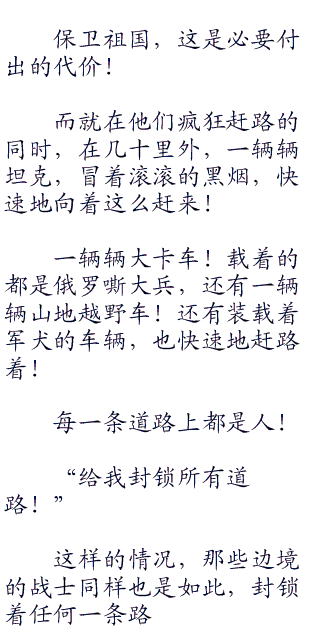 保卫祖国，这是必要付
出的代价！
而就在他们疯狂赶路的
同时，在几十里外，一辆辆
坦克，冒着滚滚的黑烟，快
速地向着这么赶来！
一辆辆大卡车！载着的
都是俄罗嘶大兵，还有一辆
辆山地越野车！还有装载着
军犬的车辆，也快速地赶路
着！
每一条道路上都是人！
“给我封锁所有道
路！”
这样的情况，那些边境
的战士同样也是如此，封锁
着任何一条路